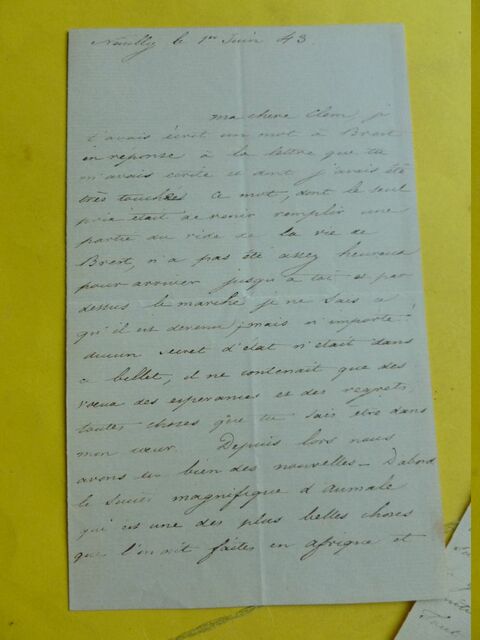 Neuilly le 1er Juin 43.
ma chere Clem, je
t'avais écrit un mot à Brest
en reponse à la lettre que tu
m'avais écrite et dont j'avais été
très touchée Ce mot, dont le seul
prix était de venir remplir une
partie du vide de la vie de
Brest, n'a pas été assez heureux
pour arriver jusqu'à toi et par
dessus le marché je ne sais ce
qu'il est devenu; mais n'importe!
aucun secret d'état n'était dans
ce billet, il ne contenait que des
voeux des esperances et des regrets,
toutes choses que tu sais etre dans
mon coeur. Depuis lors nous
avons eu bien des nouvelles – D'abord
le succès magnifique d'Aumale
qui est une des plus belles choses
que l'on ait faites en afrique et